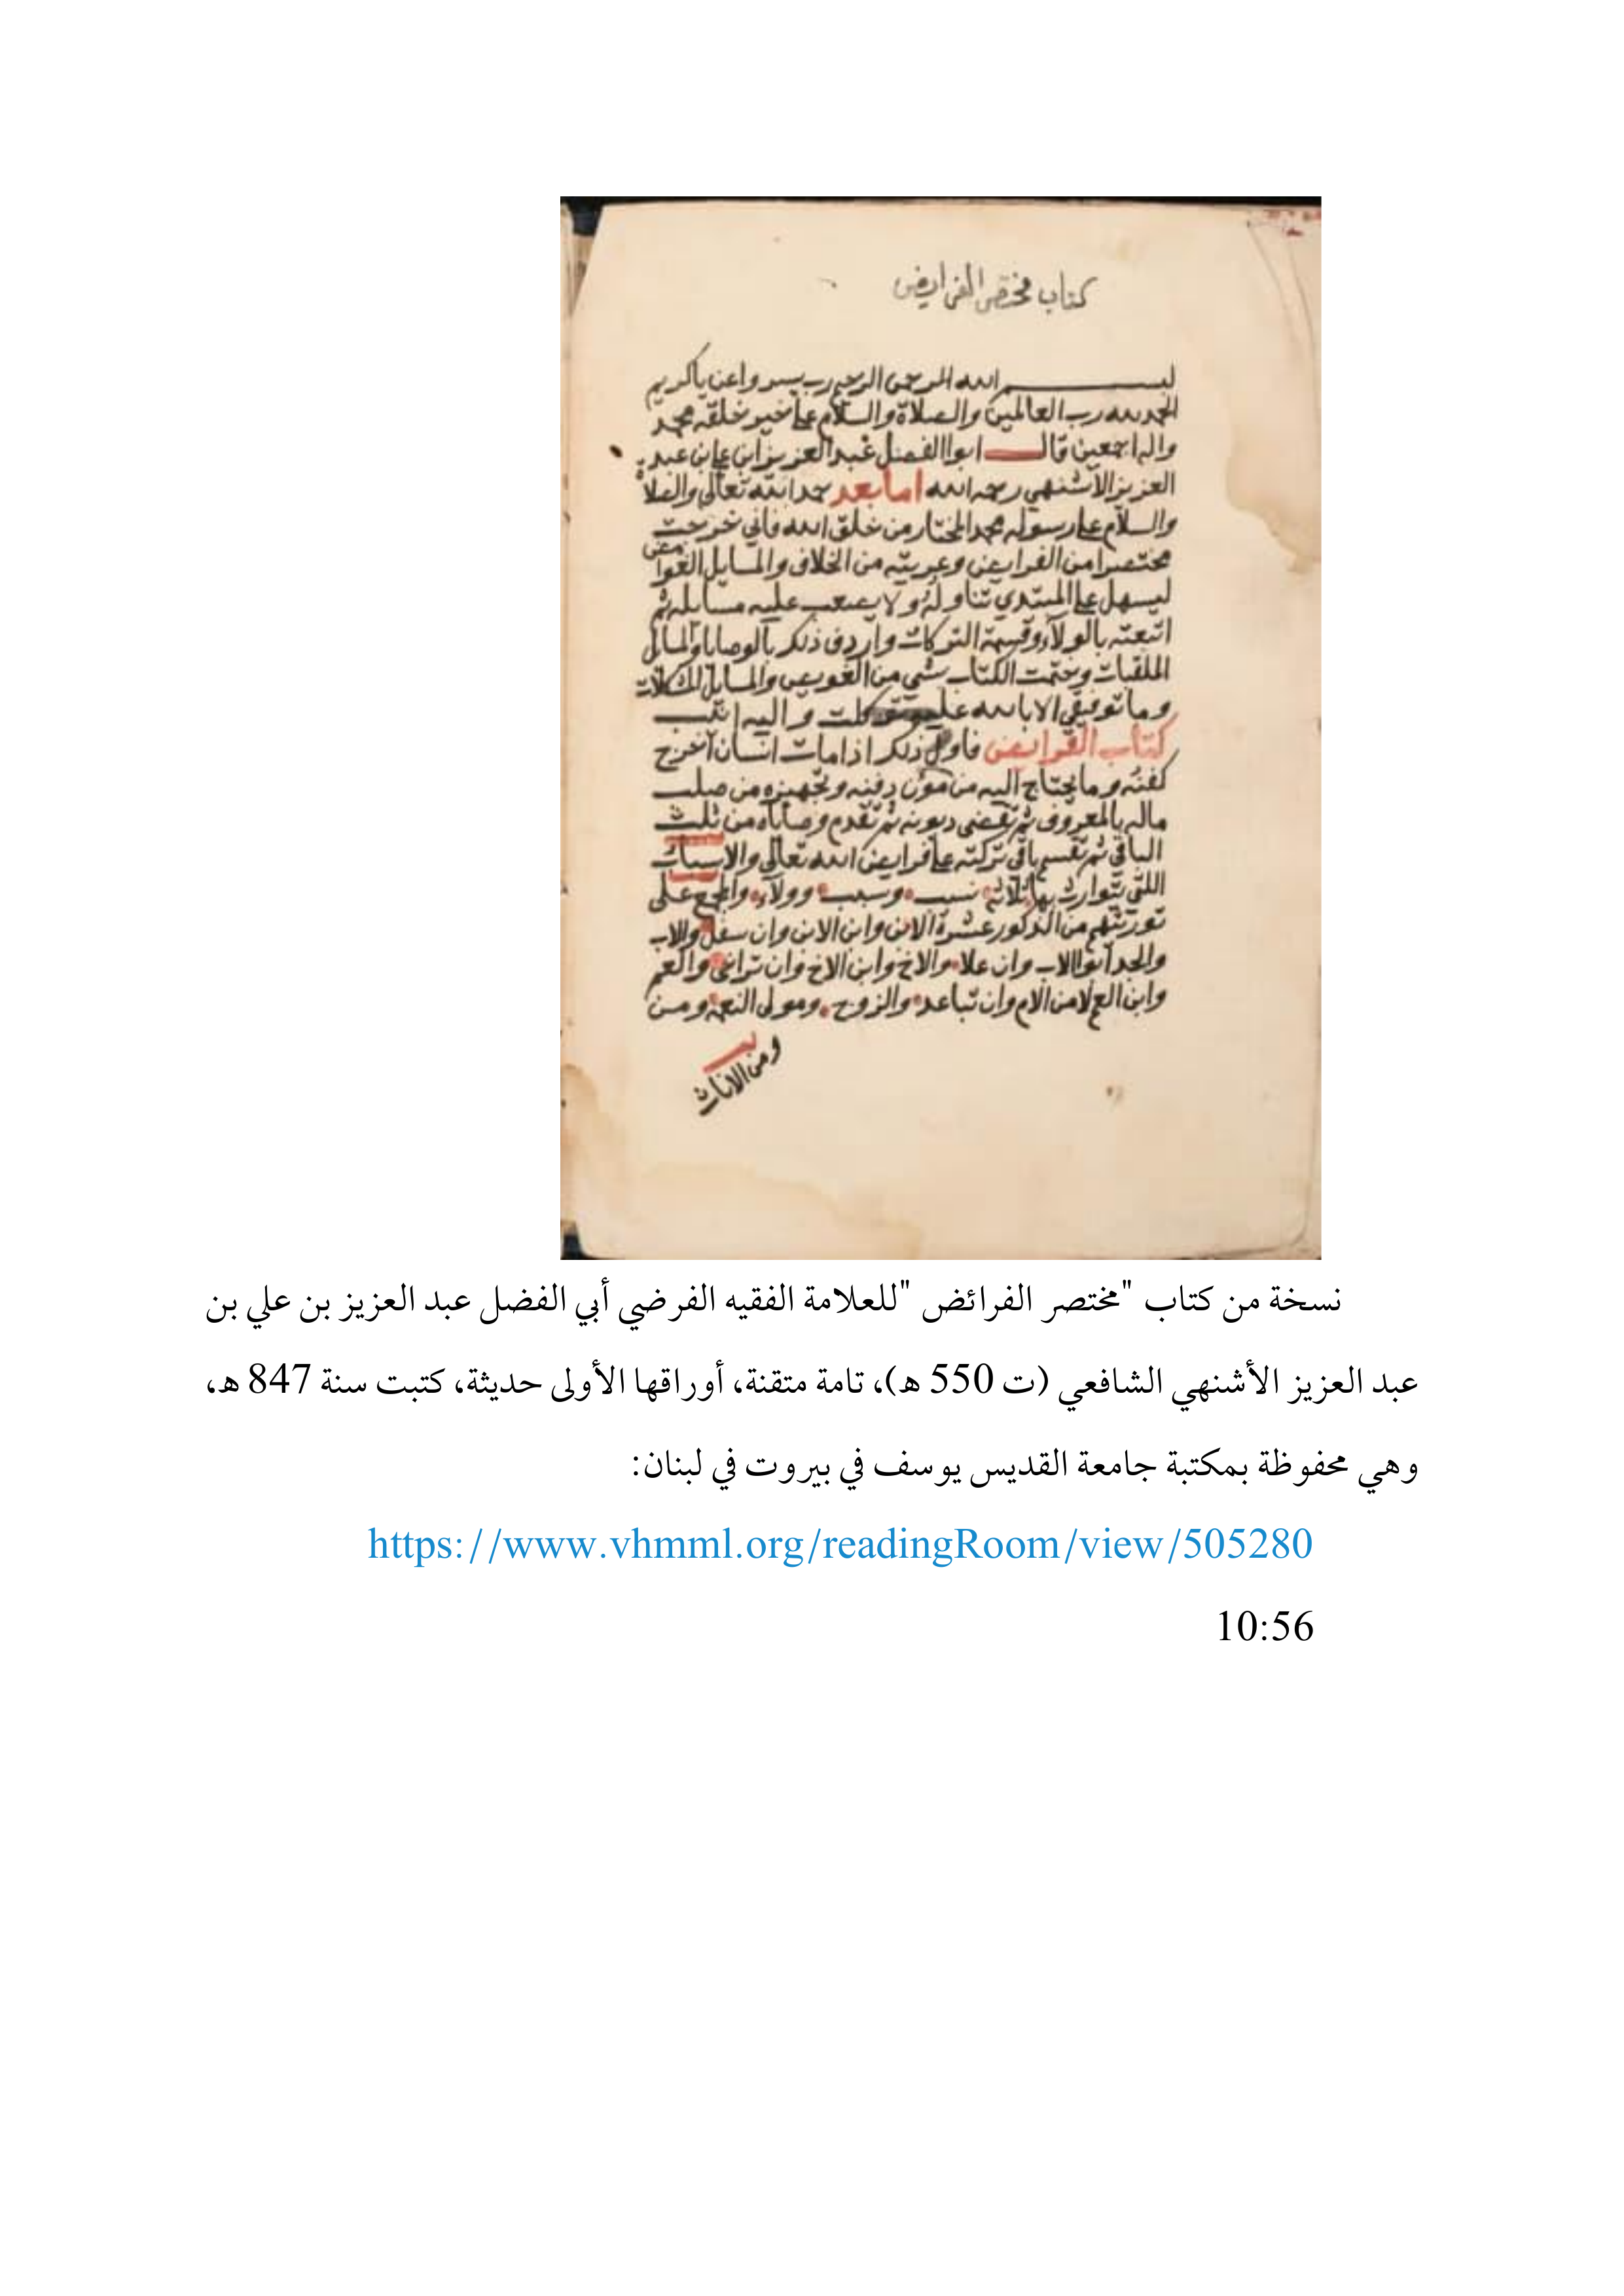 كتاب مختصر الفرايض
بسم الله الرحمن الرحيم رب يسر واعن ياكريم
الحمد لله رب العالمين والصلاة والسلام على خير خلقه محمد
واله اجمعين قال ابوا الفضل عبد العزيز ابن علي ابن عبد
العزيز الاشنهي رحمه الله اما بعد حمد الله تعالى والصلاة
والسلام على رسوله محمد المختار من خلق الله فاني خرجت
مختصرا من الفرايض وعريته من الخلاف والمسايل الغوامض
ليسهل على المبتدي تناوله ولا يصعب عليه مسايله ثم
اتبعته بالولاء وقسمة التركات واردف ذلك بالوصايا والمسايل
الملقبات وختمت الكتاب بشي من العويص والمسايل المشكلات
وما توفيقي الا بالله عليه توكلت واليه انيب
كتاب الفرايض فاول ذلك اذا مات انسان اخرج
كفنه وما يحتاج اليه من مؤن دفنه وتجهيزه من صلب
ماله بالمعروف ثم تقضى ديونه ثم تقدم وصاياه من ثلث
الباقي ثم تقسم باقي تركته على فرايض الله تعالى والاسباب
اللتي يتوارث بها ثلاثة نسب وسبب وولاء والمجمع على
توريثهم من الذكور عشرة الابن وابن الابن وان سفل والاب
والجد ابوا الاب وان علا والاخ وابن الاخ وان تراخى والعم
وابن العم لا من الام وان تباعد والزوج ومولى النعمة ومن
ومن الاناث
نسخة من كتاب "مختصر الفرائض "للعلامة الفقيه الفرضي أبي الفضل عبد العزيز بن علي بن
عبد العزيز الأشنهي الشافعي (ت 550 هـ)، تامة متقنة، أوراقها الأولى حديثة، كتبت سنة 847 هـ،
وهي محفوظة بمكتبة جامعة القديس يوسف في بيروت في لبنان:
https://www.vhmml.org/readingRoom/view/505280
10:56